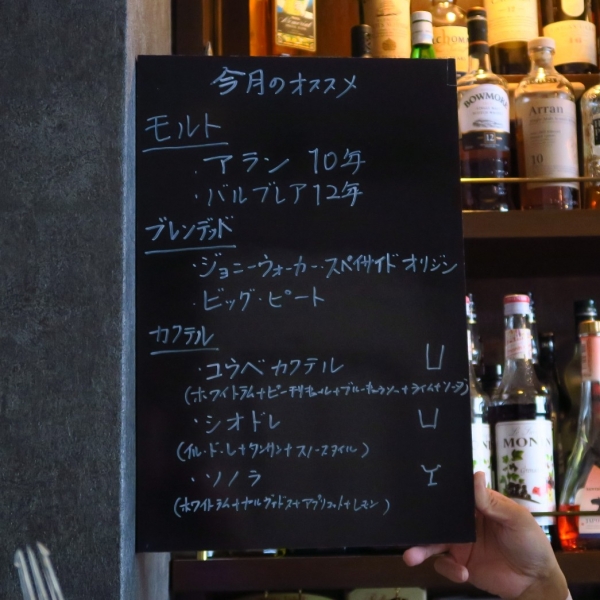 今月のオススメ
モルト
・アラン 10年
・バルブレア12年
ブレンデッド
・ジョニーウォーカー・スペイサイドオリジン
・ビッグ・ピート
カクテル
・コウベカクテル
(ホワイトラム+ピーチリキュール+ブルーキュラソー+ライム+ソーダ)
・シオドレ
・ソノラ
(ホワイトラム+カルヴァドス+アプリコット+レモン)
BOWMORE
12
Arran
10
MONI